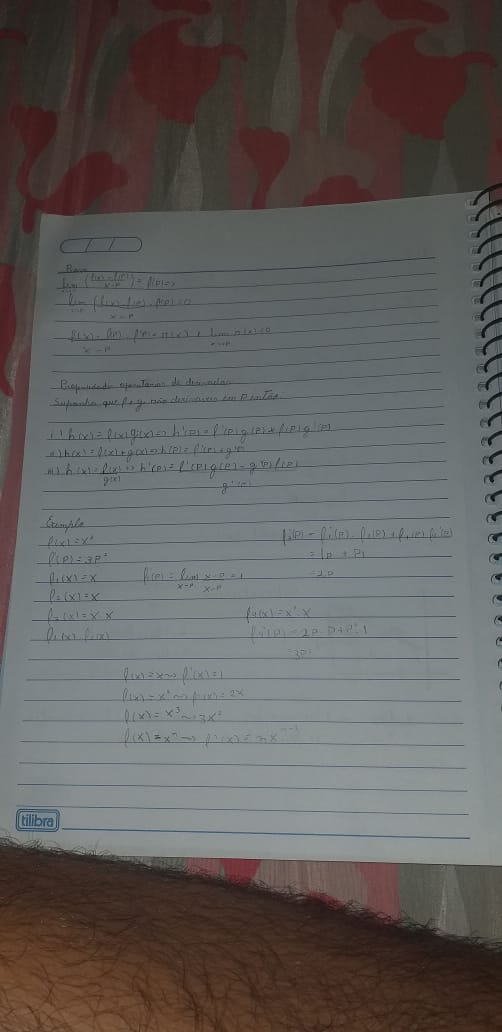 Prova
lim (f(x)-f(p)/x-p) = f'(p) =>
lim (f(x)-f(p)/x-p - f'(p)) = 0
f(x) - f(p)/x-p - f'(p) = r(x), lim r(x) = 0
x→p
Propriedades operatórias de derivadas
Suponha que f e g são deriváveis em p então
i) h(x) = f(x) g(x) => h'(p) = f'(p) g(p) + f(p) g'(p)
ii) h(x) = f(x) + g(x) => h'(p) = f'(p) + g'(p)
iii) h(x) = f(x)/g(x) => h'(p) = f'(p) g(p) - g'(p) f(p)/g²(p)
Exemplo
f(x) = x³
f'(p) = 3p²
f₁(x) = x f₁'(p) = lim x-p/x-p = 1
x→p
f₂(x) = x
f₃(x) = x·x
f₁(x) f₂(x)
f₃'(p) = f₁'(p) f₂(p) + f₁(p) f₂'(p)
= 1p + p1
= 2p
f₄(x) = x²·x
f₄'(p) = 2p·p + p²·1
= 3p²
f(x) = x → f'(x) = 1
f(x) = x² → f'(x) = 2x
f(x) = x³ → 3x²
f(x) = xⁿ → f'(x) = nxⁿ⁻¹
tilibra